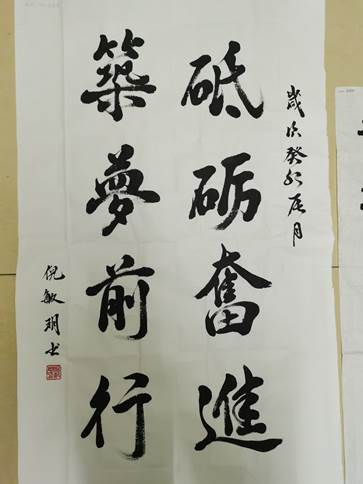 歲次癸卯辰月
砥砺奮進
築夢前行
倪敏明书